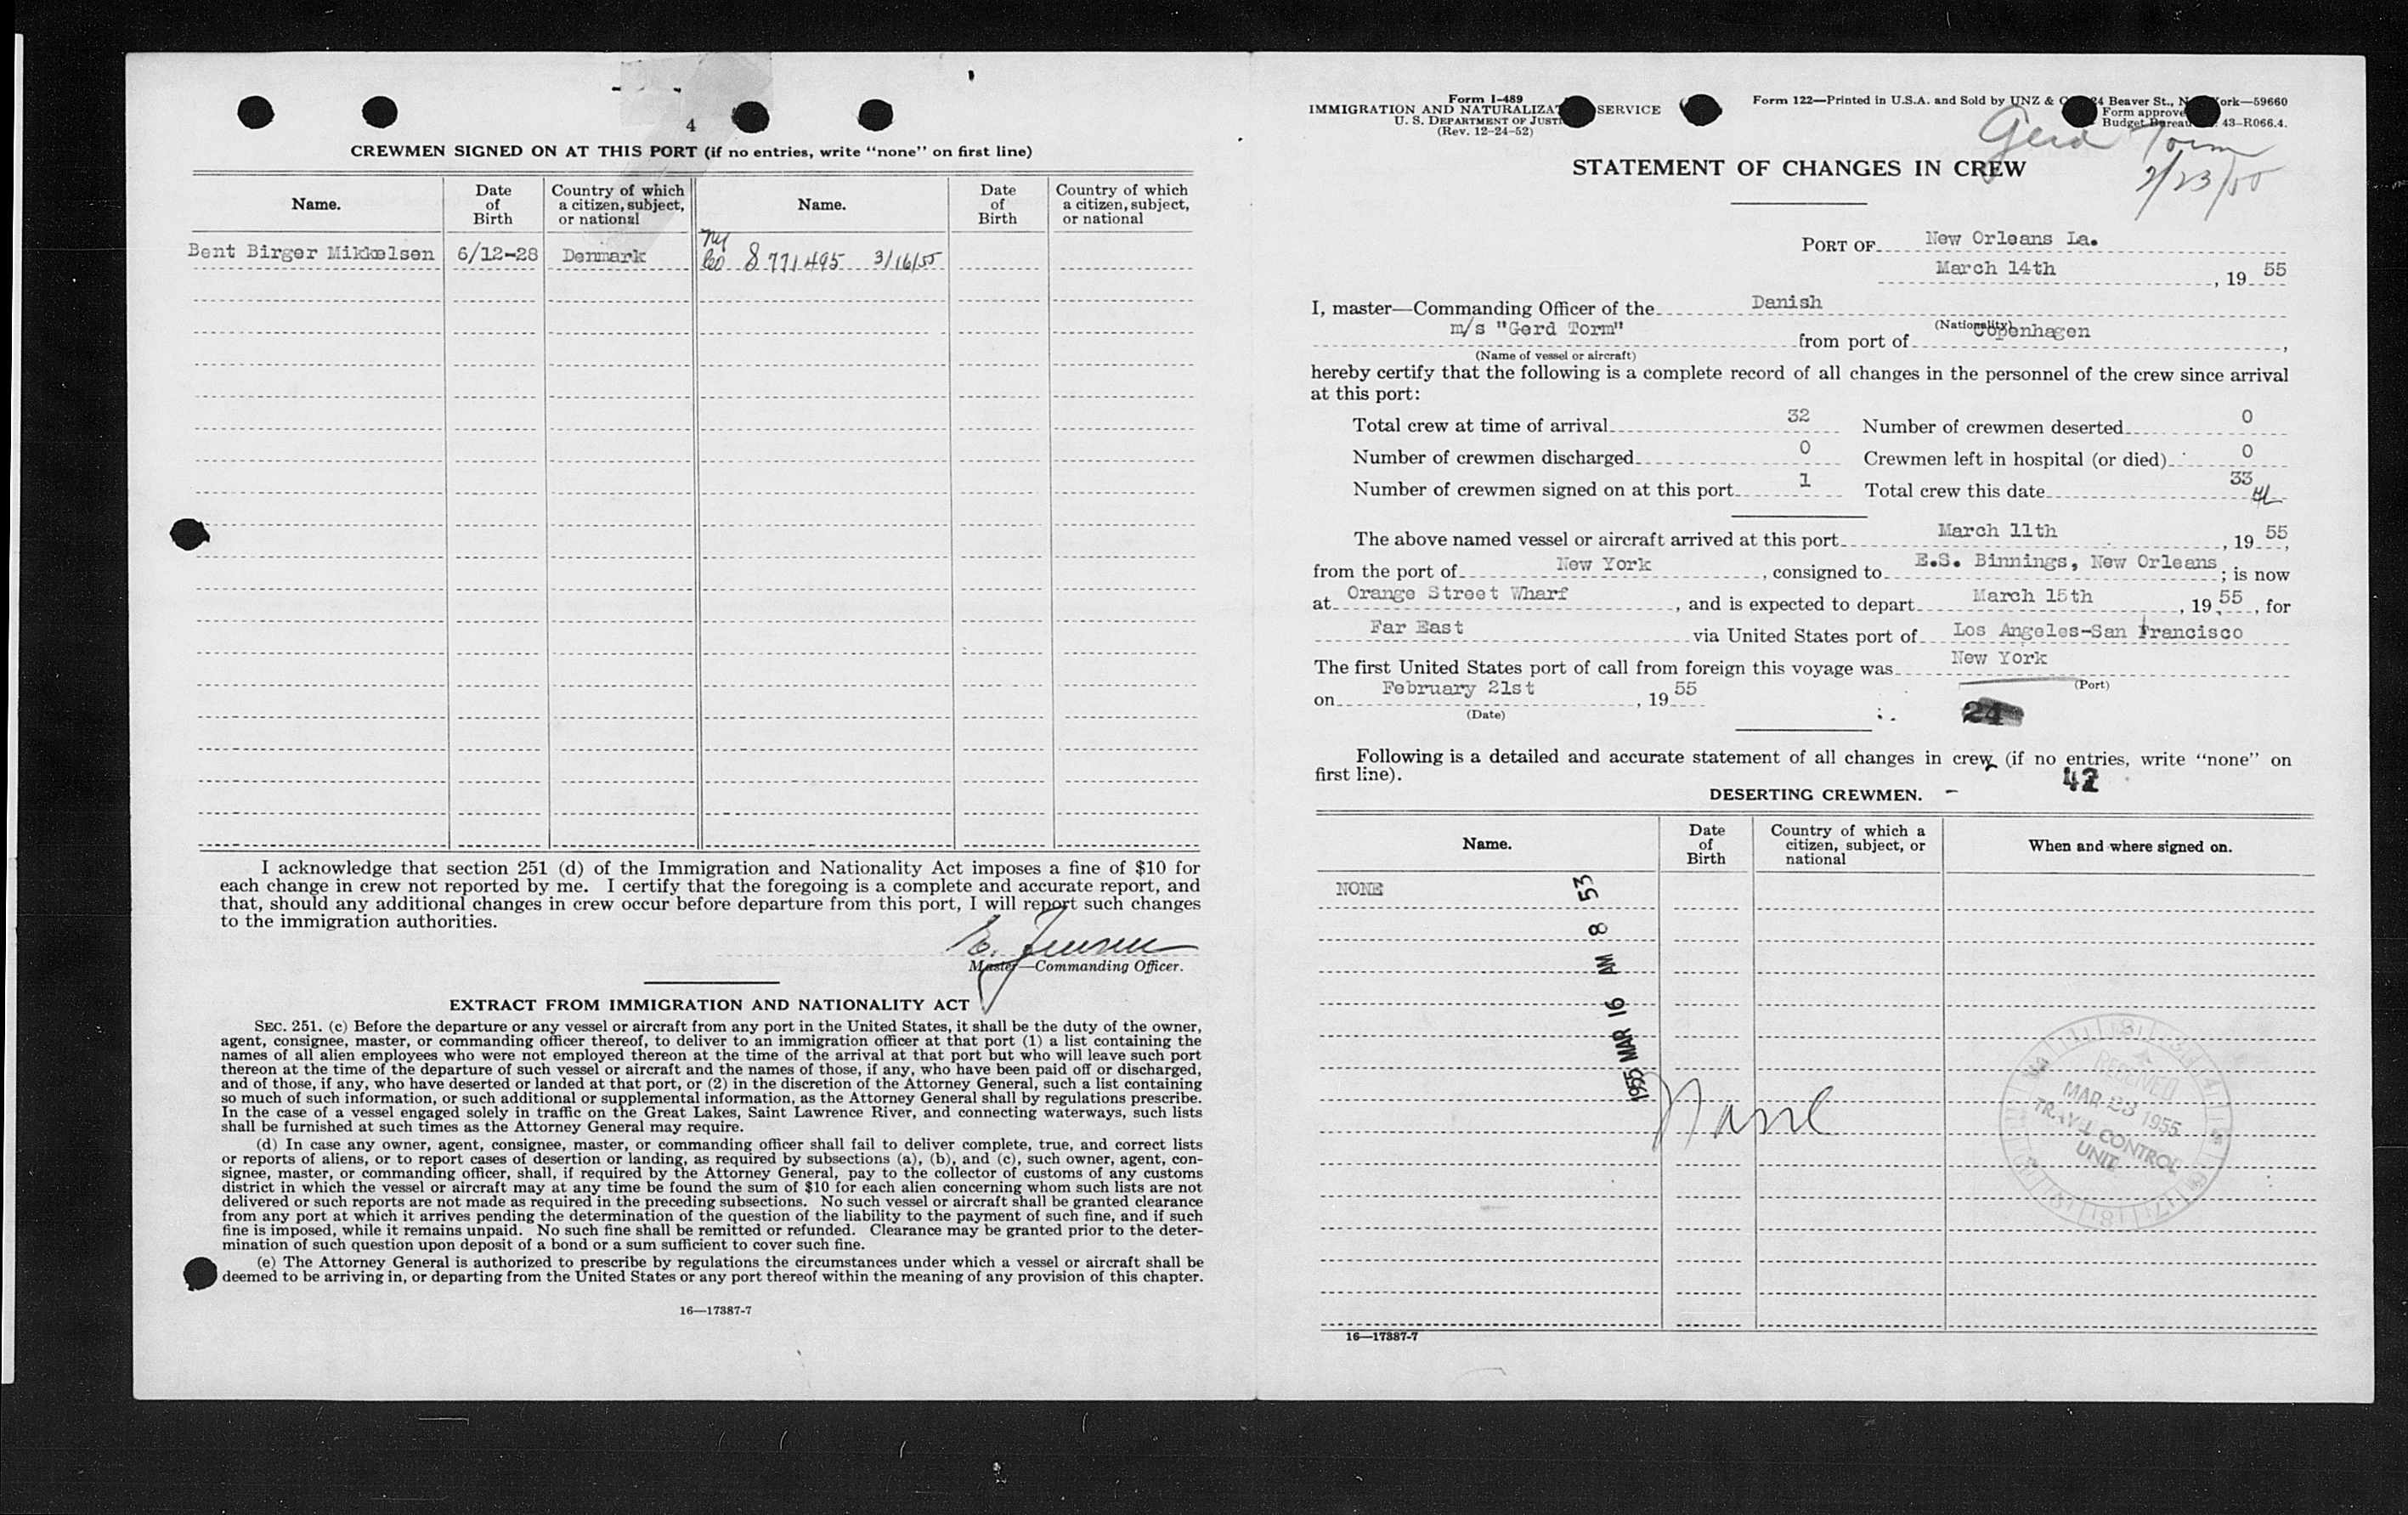 4
CREWMEN SIGNED ON AT THIS PORT (if no entries, write "none" on first line)
Name. Date of Birth Country of which a citizen, subject, or national Name. Date of Birth Country of which a citizen, subject, or national
Bent Birger Mikkelsen 6/12-28 Denmark 8 771495 3/16/55
I acknowledge that section 251 (d) of the Immigration and Nationality Act imposes a fine of $10 for
each change in crew not reported by me. I certify that the foregoing is a complete and accurate report, and
that, should any additional changes in crew occur before departure from this port, I will report such changes
to the immigration authorities.
Master—Commanding Officer.
EXTRACT FROM IMMIGRATION AND NATIONALITY ACT
SEC. 251. (c) Before the departure or any vessel or aircraft from any port in the United States, it shall be the duty of the owner,
agent, consignee, master, or commanding officer thereof, to deliver to an immigration officer at that port (1) a list containing the
names of all alien employees who were not employed thereon at the time of the arrival at that port but who will leave such port
thereon at the time of the departure of such vessel or aircraft and the names of those, if any, who have been paid off or discharged,
and of those, if any, who have deserted or landed at that port, or (2) in the discretion of the Attorney General, such a list containing
so much of such information, or such additional or supplemental information, as the Attorney General shall by regulations prescribe.
In the case of a vessel engaged solely in traffic on the Great Lakes, Saint Lawrence River, and connecting waterways, such lists
shall be furnished at such times as the Attorney General may require.
(d) In case any owner, agent, consignee, master, or commanding officer shall fail to deliver complete, true, and correct lists
or reports of aliens, or to report cases of desertion or landing, as required by subsections (a), (b), and (c), such owner, agent, con-
signee, master, or commanding officer, shall, if required by the Attorney General, pay to the collector of customs of any customs
district in which the vessel or aircraft may at any time be found the sum of $10 for each alien concerning whom such lists are not
delivered or such reports are not made as required in the preceding subsections. No such vessel or aircraft shall be granted clearance
from any port at which it arrives pending the determination of the question of the liability to the payment of such fine, and if such
fine is imposed, while it remains unpaid. No such fine shall be remitted or refunded. Clearance may be granted prior to the deter-
mination of such question upon deposit of a bond or a sum sufficient to cover such fine.
(e) The Attorney General is authorized to prescribe by regulations the circumstances under which a vessel or aircraft shall be
deemed to be arriving in, or departing from the United States or any port thereof within the meaning of any provision of this chapter.
16—17387-7
Form I-489
IMMIGRATION AND NATURALIZAT SERVICE
U. S. DEPARTMENT OF JUSTI
(Rev. 12-24-52)
Form 122—Printed in U.S.A. and Sold by UNZ & C 24 Beaver St., N ork—59660
Form approve
Budget Bureau 43-R066.4.
Gerd Torm
2/23/55
STATEMENT OF CHANGES IN CREW
PORT OF New Orleans La.
March 14th, 19 55
I, master—Commanding Officer of the Danish
(Nationality)
m/s "Gerd Torm" from port of Copenhagen,
(Name of vessel or aircraft)
hereby certify that the following is a complete record of all changes in the personnel of the crew since arrival
at this port:
Total crew at time of arrival 32 Number of crewmen deserted 0
Number of crewmen discharged 0 Crewmen left in hospital (or died) 0
Number of crewmen signed on at this port 1 Total crew this date 33
The above named vessel or aircraft arrived at this port March 11th, 19 55,
from the port of New York, consigned to E.S. Binnings, New Orleans; is now
at Orange Street Wharf, and is expected to depart March 15th, 19 55, for
Far East via United States port of Los Angeles-San Francisco
The first United States port of call from foreign this voyage was New York
(Port)
on February 21st, 19 55
(Date)
24
Following is a detailed and accurate statement of all changes in crew (if no entries, write "none" on
first line).
42
DESERTING CREWMEN.
Name. Date of Birth Country of which a citizen, subject, or national When and where signed on.
NONE
1955 MAR 16 AM 8 53
None
RECEIVED
MAR 23 1955
TRAVEL CONTROL
UNIT
16—17387-7